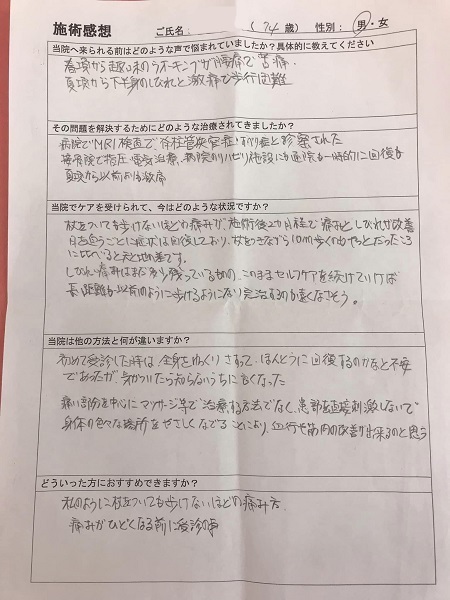 施術感想 ご氏名: (74歳) 性別: 男・女
当院へ来られる前はどのような声で悩まれていましたか？具体的に教えてください
春頃から趣味のウオーキングが腰痛で苦痛、
夏頃から下半身のしびれと激痛で歩行困難
その問題を解決するためにどのような治療されてきましたか？
病院でMRI検査で脊柱管狭窄症、すべり症と診察された
接骨院で指圧・電気治療、病院のリハビリ施設にも通院も一時的に回復も
夏頃から以前よりも激痛
当院でケアを受けられて、今はどのような状況ですか？
杖をついても歩けないほどの痛みが、施術後2か月程で痛みとしびれが改善
日を追うごとに症状は回復しており、杖をつきながら10m歩くのもやっとだったころ
に比べると天と地の差です。
しびれ、痛みはまだ少し残っているものの、このままセルフケアを続けていけば
長距離も以前のように歩けるようになり完治するのも遠くなさそう。
当院は他の方法と何が違いますか？
初めて受診した時は全身をゆっくりさすって、ほんとうに回復するのかなと不安
であったが、身がついたら知らないうちに良くなった
痛い部分を中心にマッサージ等で治療する方法でなく、患部を直接刺激しないで
身体の色々な場所をやさしくなでることにより、血行や筋肉の改善が出来るのと思う
どういった方におすすめできますか？
私のように杖をついても歩けないほどの痛み方
痛みがひどくなる前に受診の事